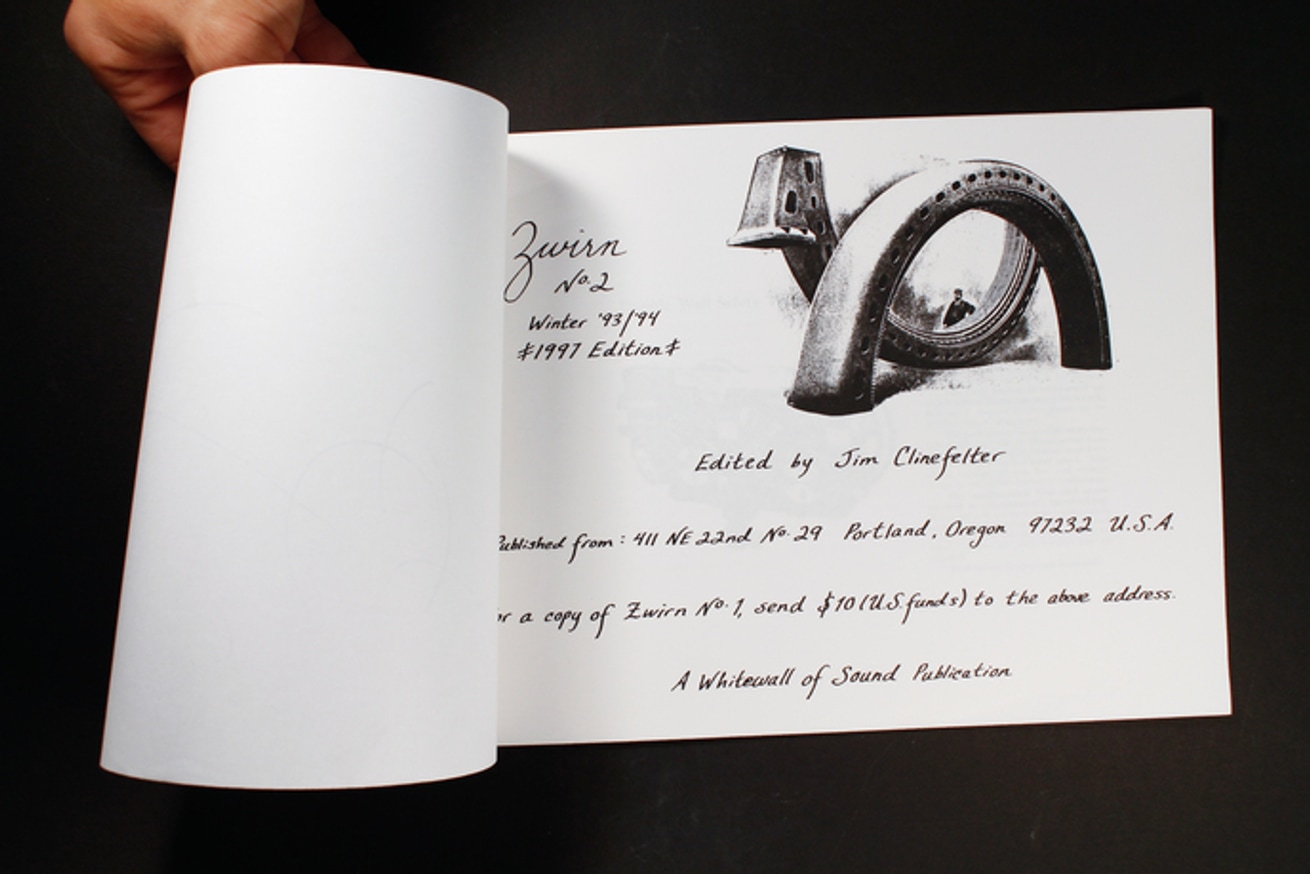 Zwirn
No. 2
Winter '93/'94
‡1997 Edition‡
Edited by Jim Clinefelter
Published from: 411 NE 22nd No. 29 Portland, Oregon 97232 U.S.A.
a copy of Zwirn No. 1, send $10 (U.S. funds) to the above address.
A Whitewall of Sound Publication